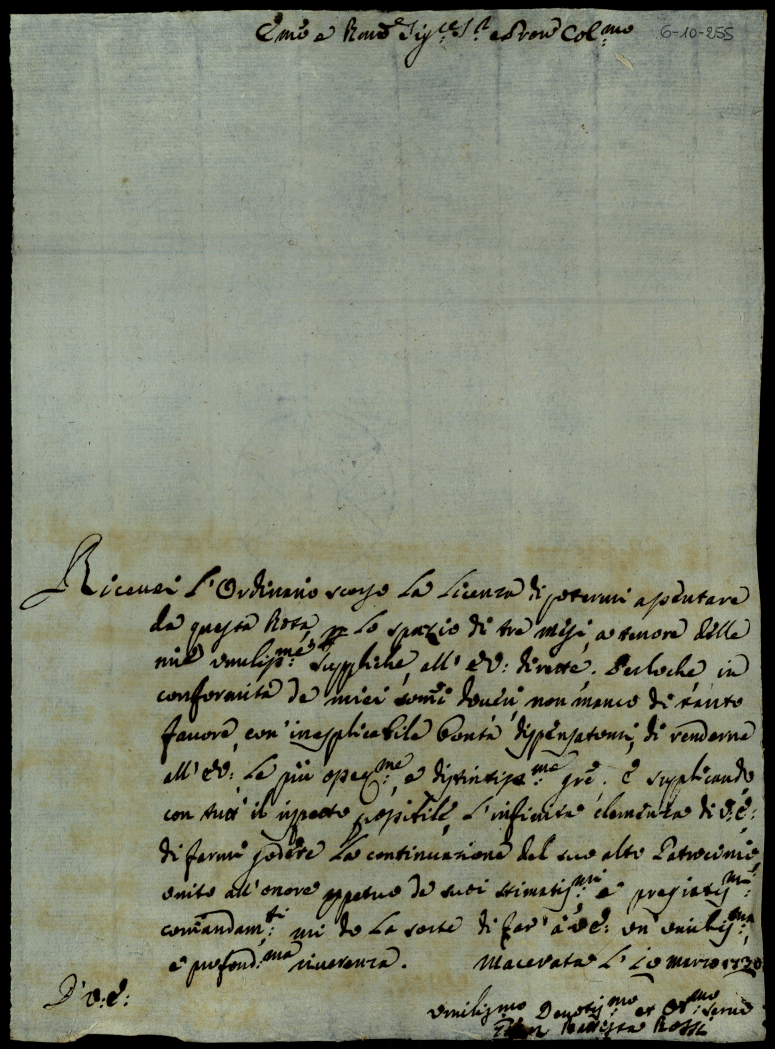 Em̃o e Rmo Sig.re S.r e Pron Col.mo 6-10-255
Riceuei l'Ordinario scorso la licenza di potermi assentare
da questa Rota p lo spazio di tre mesi, a tenore delle
mie vmiliss.me suppliche, all' E.V: dirette. Perloche in
conformità de miei som̃i doueri, non manco di tanto
fauore, con' inesplicabile bontà dispensatomi, di renderne
all' E.V: le più osseq.me, e distintiss.me gr̃e. E supplicando
con tutt' il rispetto possibile, l'infinita clemenza di V.E:
di farmi godere la continuazione del suo alto Patrocinio,
vnito all'onore ppetuo de suoi stimatiss.mi e pregiatiss.mi
com̃andam.ti mi do la sorte di far' à V.E: vn' vmiliss.ma
e profond.ma riuerenza. Macerata l' marzo 1730
D' V.E:
vmilissmo Deuotiss.mo et Ob.mo Seruo
Battista Rossi